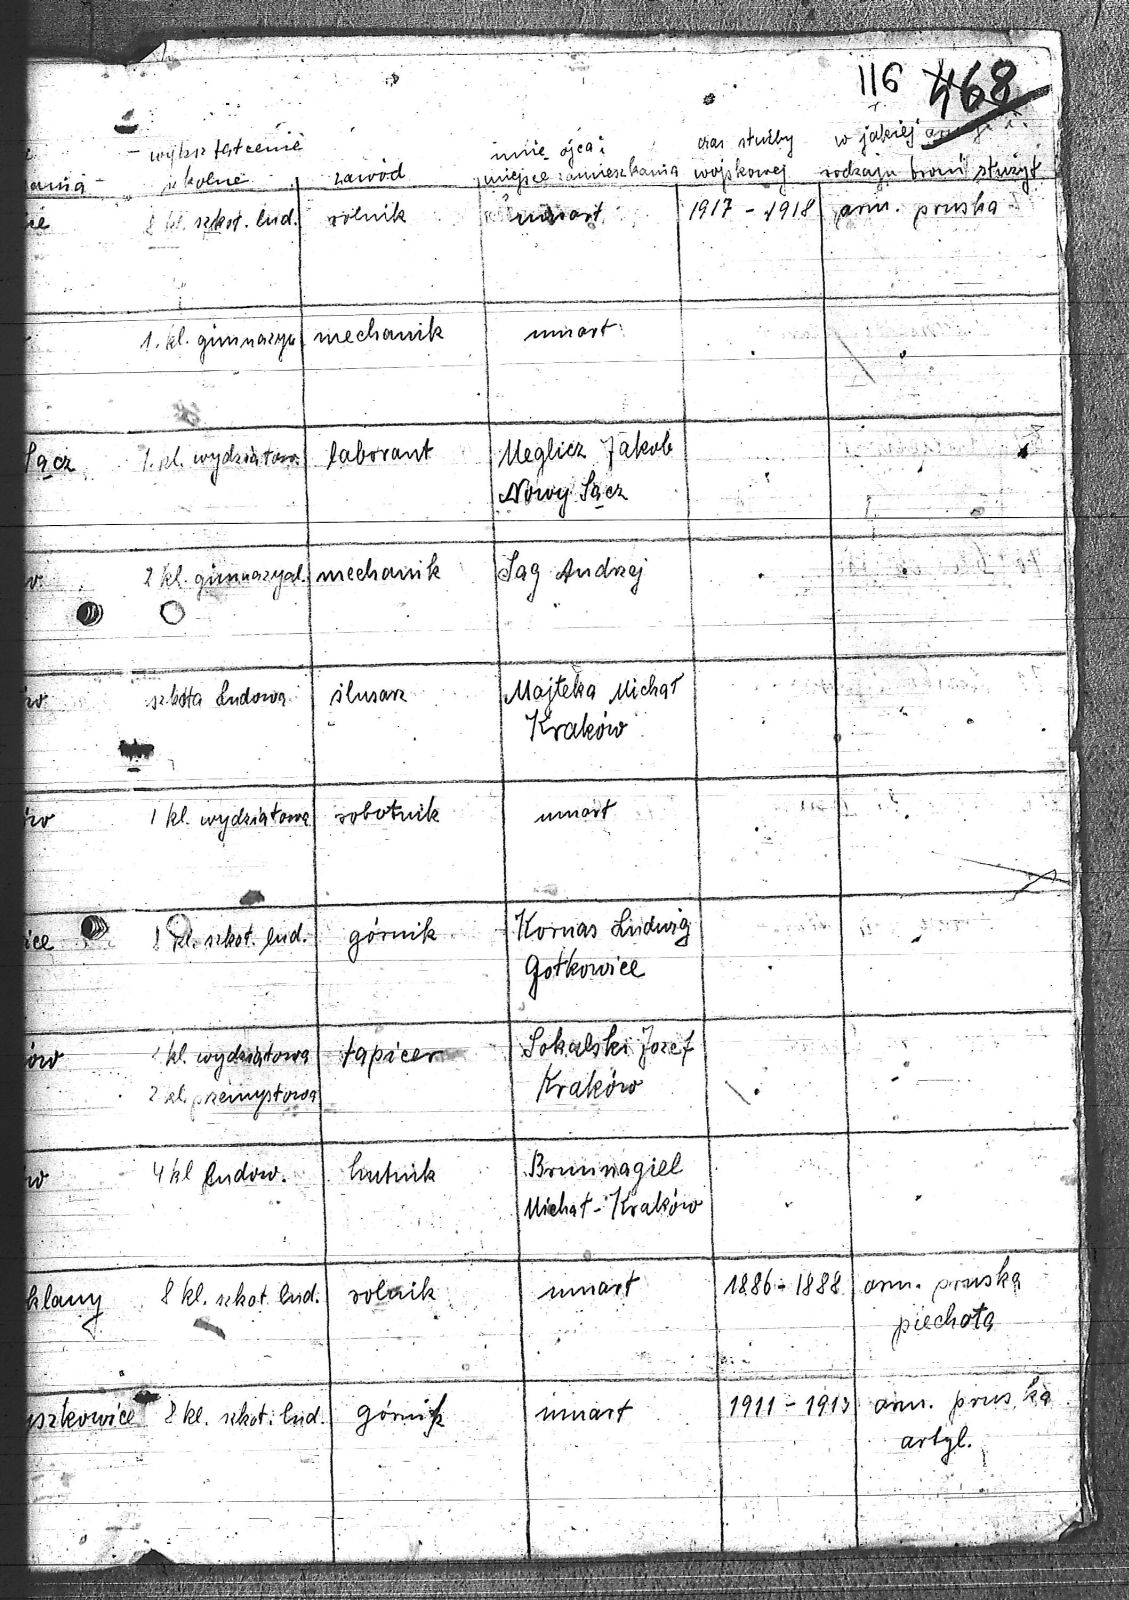 116 468
wykształcenie imię ojca i czas służby w jakiej
szkolne zawód miejsce zamieszkania wojskowej rodzaju broni służył
8 kl. szkoł. lud. rolnik umart 1917 - 1918 arm. pruska
1. kl. gimnazyu mechanik umart
Sącz 1. kl. wydziałow. laborant Meglicz Jakob
Nowy Sącz
2 kl. gimnazyal. mechanik Sag Andrzej
szkoła ludowa ślusarz Majteka Michał
Kraków
1 kl. wydziałowa robotnik umart
ice 8 kl. szkoł. lud. górnik Kornas Ludwig
Gotkowice
ów kl. wydziałowa tapicer Sokalski Jozef
2 kl. przemysłowa Kraków
4 kl ludow. hutnik Brunnagiel
Michał - Kraków
klany 8 kl. szkoł. lud. rolnik umart 1886 - 1888 arm. pruska
piechota
yszkowice 8 kl. szkoł. lud. górnik umart 1911 - 1913 arm. pruska
artyl.